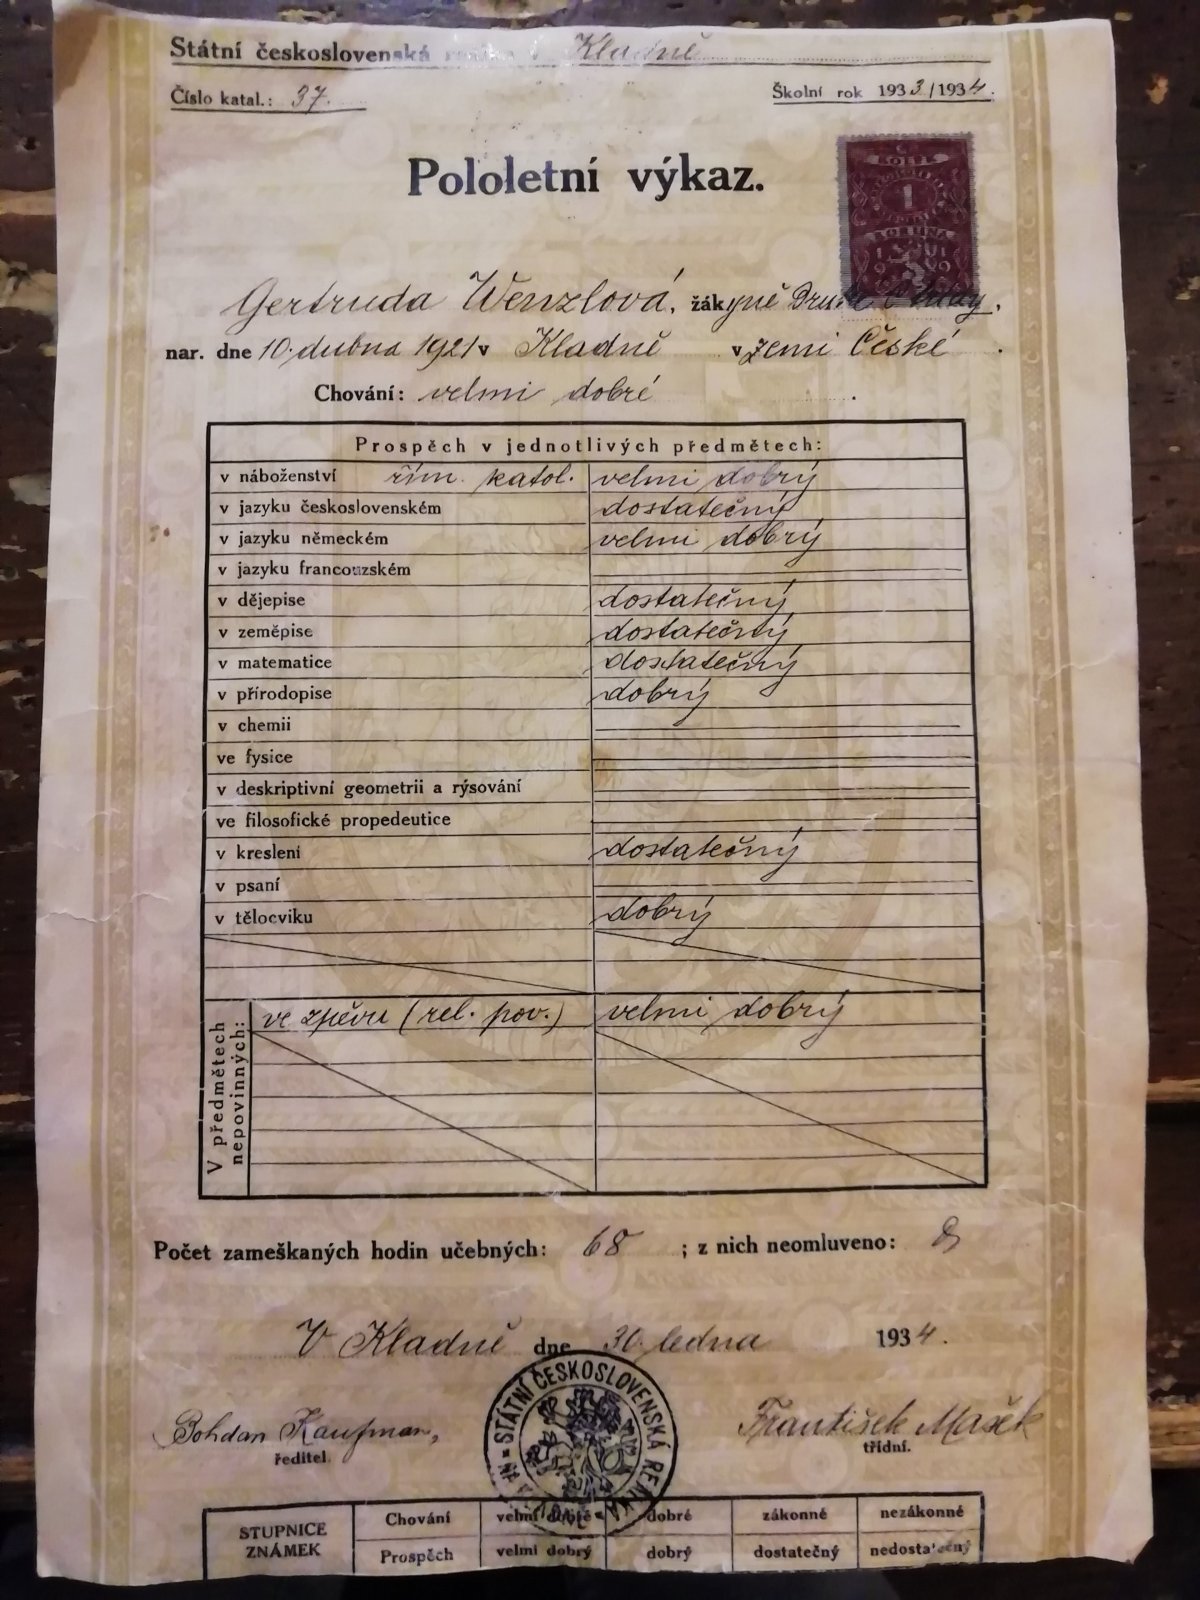 Státní československá reálka v Kladně
Číslo katal.: 37. Školní rok 1933/1934.
Pololetní výkaz.
KOLEK
1
KORUNA
1919
Gertruda Wenzlová, žákyně Druhé C třídy,
nar. dne 10. dubna 1921 v Kladně v zemi České.
Chování: velmi dobré
Prospěch v jednotlivých předmětech:
v náboženství řím. katol. velmi dobrý
v jazyku československém dostatečný
v jazyku německém velmi dobrý
v jazyku francouzském
v dějepise dostatečný
v zeměpise dostatečný
v matematice dostatečný
v přírodopise dobrý
v chemii
ve fysice
v deskriptivní geometrii a rýsování
ve filosofické propedeutice
v kreslení dostatečný
v psaní
v tělocviku dobrý
V předmětech nepovinných:
ve zpěvu (rel. pov.) velmi dobrý
Počet zameškaných hodin učebných: 68 ; z nich neomluveno:
V Kladně dne ledna 1934.
STÁTNÍ ČESKOSLOVENSKÁ REÁLKA
Bohdan Kaufman, František Mašek
ředitel. třídní.
STUPNICE ZNÁMEK
Chování velmi dobré dobré zákonné nezákonné
Prospěch velmi dobrý dobrý dostatečný nedostatečný